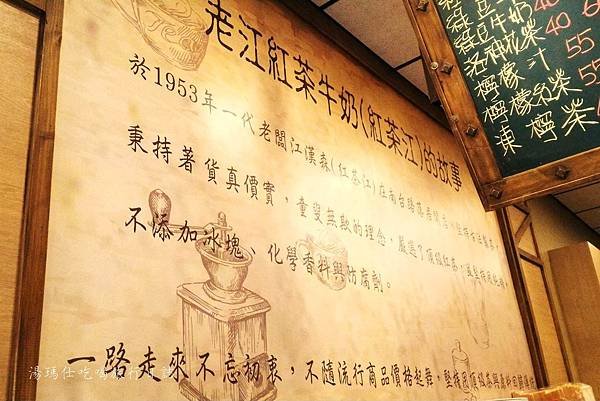 老江紅茶牛奶(紅茶江)的故事
於1953年一代老闆江漢森(紅茶江)在南台路
秉持著貨真價實，童叟無欺的理念，嚴選了頂級紅茶，
不添加冰塊、化學香料與防腐劑。
一路走來不忘初衷，不隨流行商品價格起舞，堅持用頂級茶與
綠豆牛奶 40
洛神花茶
檸檬汁 55
檸檬紅茶 55
凍檸茶
湯瑪仕吃喝旅行